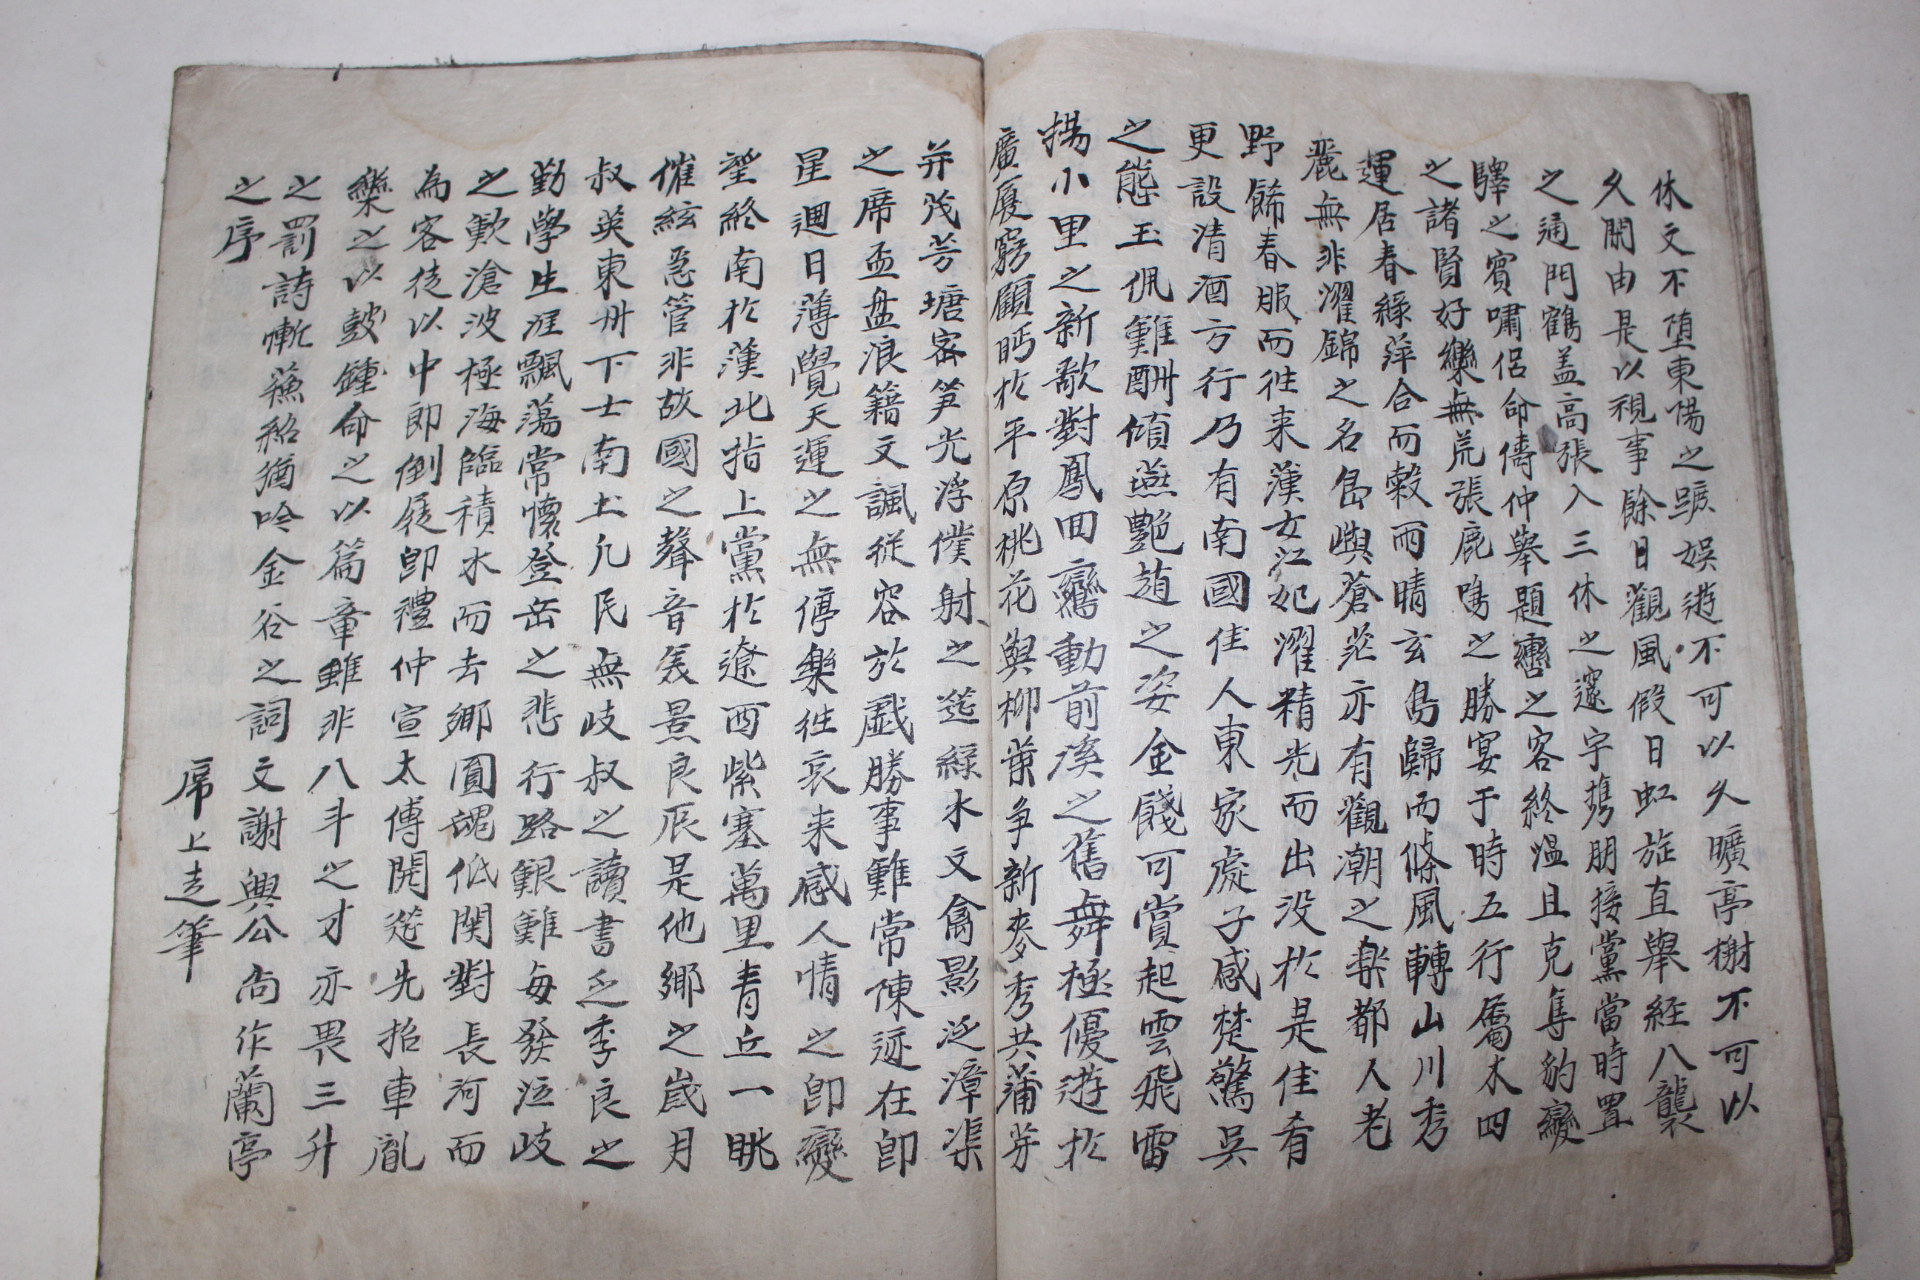 休文不堕東陽之蹤娯遊不可以久曠亭榭不可以
久閑由是以視事餘日觀風假日虹旌直擧経八襲
之通門鶴盖高張入三休之邃宇携朋接黨當時置
驛之賓嘯侣命儔仲擧題輿之客終温且克隼豹變
之諸賢好樂無荒張鹿鳴之勝宴于時五行属木四
運居春綠萍合而榖雨晴玄鳥歸而條風轉山川秀
麗無非濯錦之名島嶼蒼茫亦有觀潮之樂都人老
野餙春服而徃来漢女江妃濯精光而出没於是佳肴
更設清酒方行乃有南國佳人東家處子感楚驚吳
之態玉佩難酬傾燕艶趙之姿金餞可賞起雲飛雷
揚小里之新歌對鳳回鸞動前溪之舊舞極優遊於
廣厦窮顧眄於平原桃花與柳葉争新麥秀共蒲芽
并茂芳塘密笋光浮僕射之莚綠水文禽影泛漳渠
之席盃盘浪籍文諷從容於戱勝事難常陳迹在即
星週日薄覺天運之無停樂徃哀来感人情之即變
望終南於漢北指上黨於遼酉紫塞萬里青丘一眺
催絃急管非故國之聲音羙景良辰是他郷之歳月
叔英東州下士南土凡民無岐叔之讀書乏季良之
勤學生涯飄蕩常懷登岳之悲行路艱難每發泣岐
之歎滄波極海臨積水而去郷圓魂低関對長河而
為客徒以中郎倒屐卽禮仲宣太傅開莚先招車胤
樂之以鼓鍾命之以篇章雖非八斗之才亦畏三升
之罰詩慚蘓紹猶吟金谷之詞文謝興公尚作蘭亭
之序
席上走筆